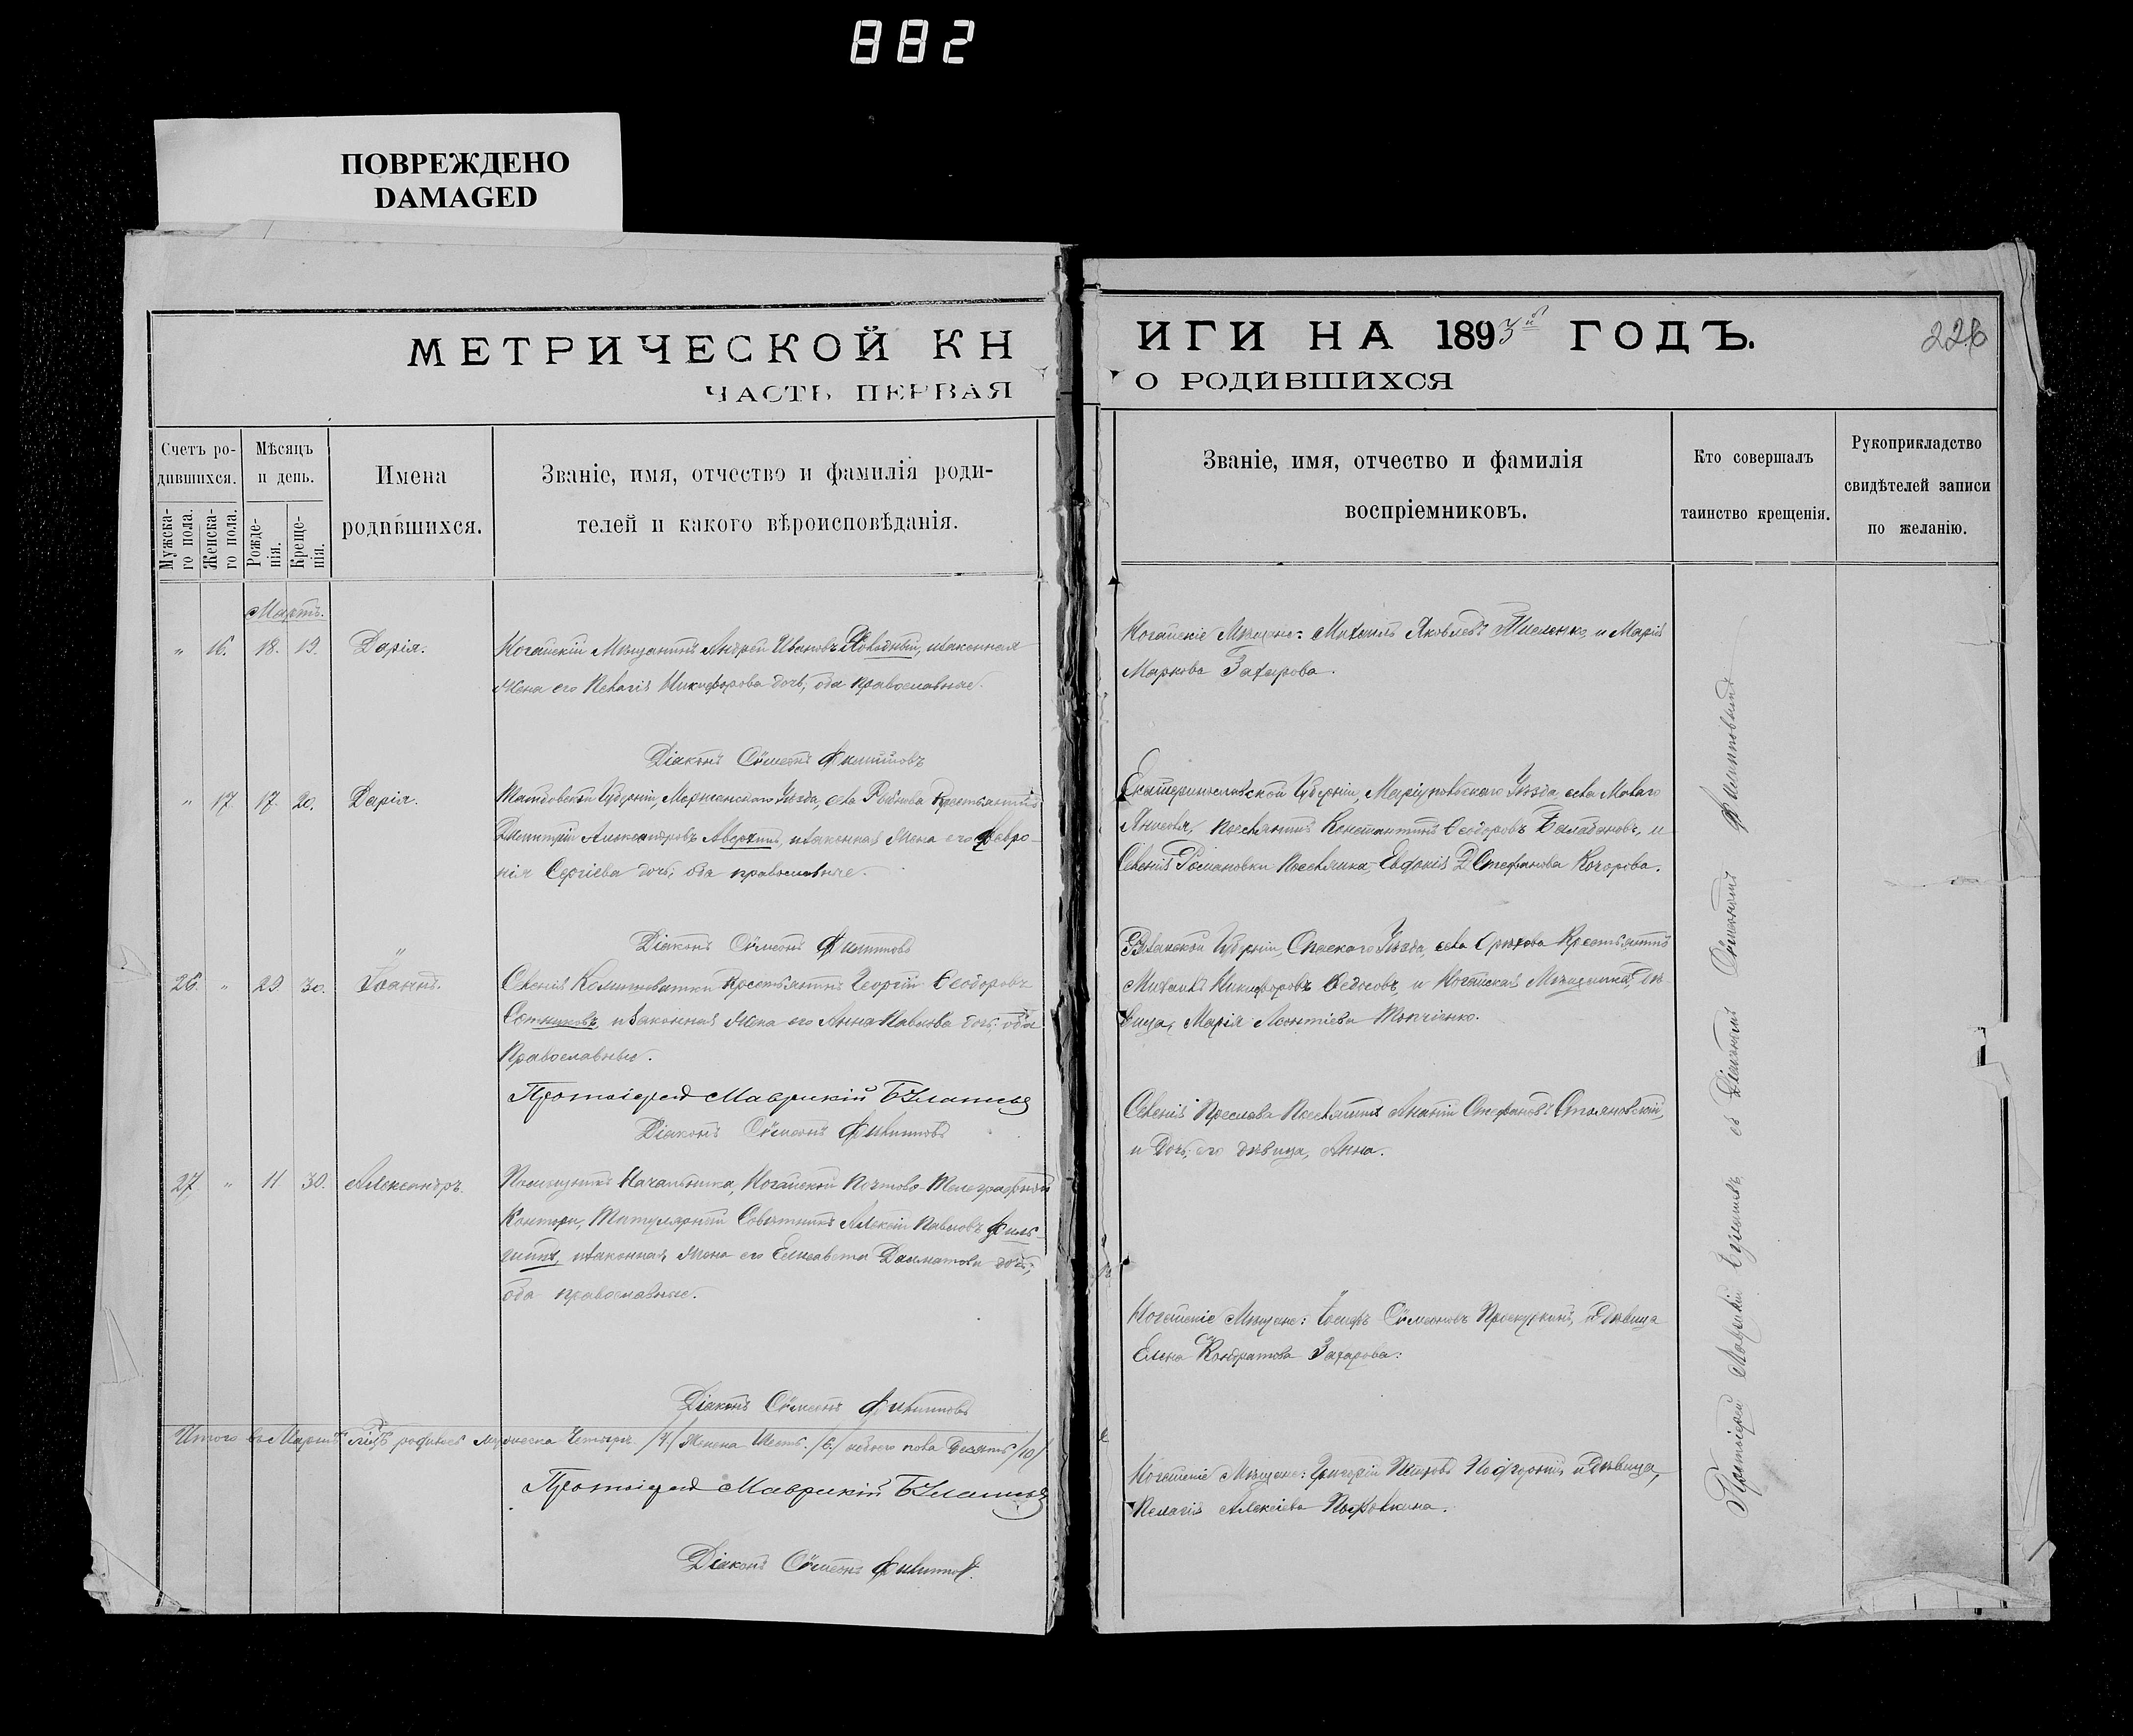 882
ПОВРЕЖДЕНО
DAMAGED
МЕТРИЧЕСКОЙ КН
ЧАСТЬ ПЕРВАЯ
Счетъ ро-
дившихся.
Мужска-
го пола.
Женска-
го пола.
Мѣсяцъ
и день.
Рожде-
нія.
Креще-
нія.
Имена
родившихся.
Званіе, имя, отчество и фамилія роди-
телей и какого вѣроисповѣданія.
Мартъ.
" 16. 18. 19. Дарія. Ногайскій Мѣщанинъ Андрей Ивановъ и законная
жена его Пелагія Никифорова дочь, оба православные.
Діаконъ Сѵмеонъ Филиповъ
" 17. 17. 20. Дарія. Тамбовской Губерніи, Моршанскаго Уѣзда, села Крестьянинъ
Димитрій Александровъ Аверкинъ, и законная жена его Февро-
нія Сергіева дочь, оба православные.
Діаконъ Сѵмеонъ Филиповъ
26. " 29. 30. Іоаннъ. Селенія Крестьянинъ Георгій Ѳеодоровъ
Сотниковъ, и законная жена его Анна Павлова дочь, оба
Православные.
Протоіерей Маврикій
Діаконъ Сѵмеонъ Филиповъ
27 " 11 30. Александръ. Помощникъ Начальника, Ногайской Почтово-Телеграфной
Конторы, Титулярный Совѣтникъ Алексій Павловъ
и законная жена его Елисавета Далматова дочь,
оба православные.
Діаконъ Сѵмеонъ Филиповъ
Итого въ Мартѣ м-цѣ родилось мужеска Четыре /4/ Женска Шесть /6/ обоего пола Десять /10/
Протоіерей Маврикій
Діаконъ Сѵмеонъ Филиповъ.
ИГИ НА 1893й ГОДЪ.
226
О РОДИВШИХСЯ
Званіе, имя, отчество и фамилія
воспріемниковъ.
Кто совершалъ
таинство крещенія.
Рукоприкладство
свидѣтелей записи
по желанію.
Ногайскіе Мѣщане: Михаилъ Яковлевъ и Марія
Маркова Захарова.
Екатеринославской Губерніи, Маріупольскаго Уѣзда, села Малаго
Янисоля, Поселянинъ Константинъ Ѳеодоровъ Балабановъ, и
Селенія Романовки Поселянка, Евдокія Стефанова Кочорова.
Губерніи, Спасскаго Уѣзда, села Крестьянинъ
Михаилъ Никифоровъ Ѳедосовъ, и Ногайская Мѣщанка, дѣ-
вица, Марія Леонтіева Топчіенко.
Селенія Преслава Поселянинъ Ананій Стефановъ Стояновскій,
и дочь его дѣвица, Анна.
Ногайскіе Мѣщане: Іосифъ Сѵмеоновъ Проскуркинъ, и дѣвица
Елена Кондратова Захарова:
Ногайскіе Мѣщане: Григорій Петровъ и дѣвица,
Пелагія Алексіева
Протоіерей Маврикій съ Діакономъ Сѵмеономъ Филиповымъ